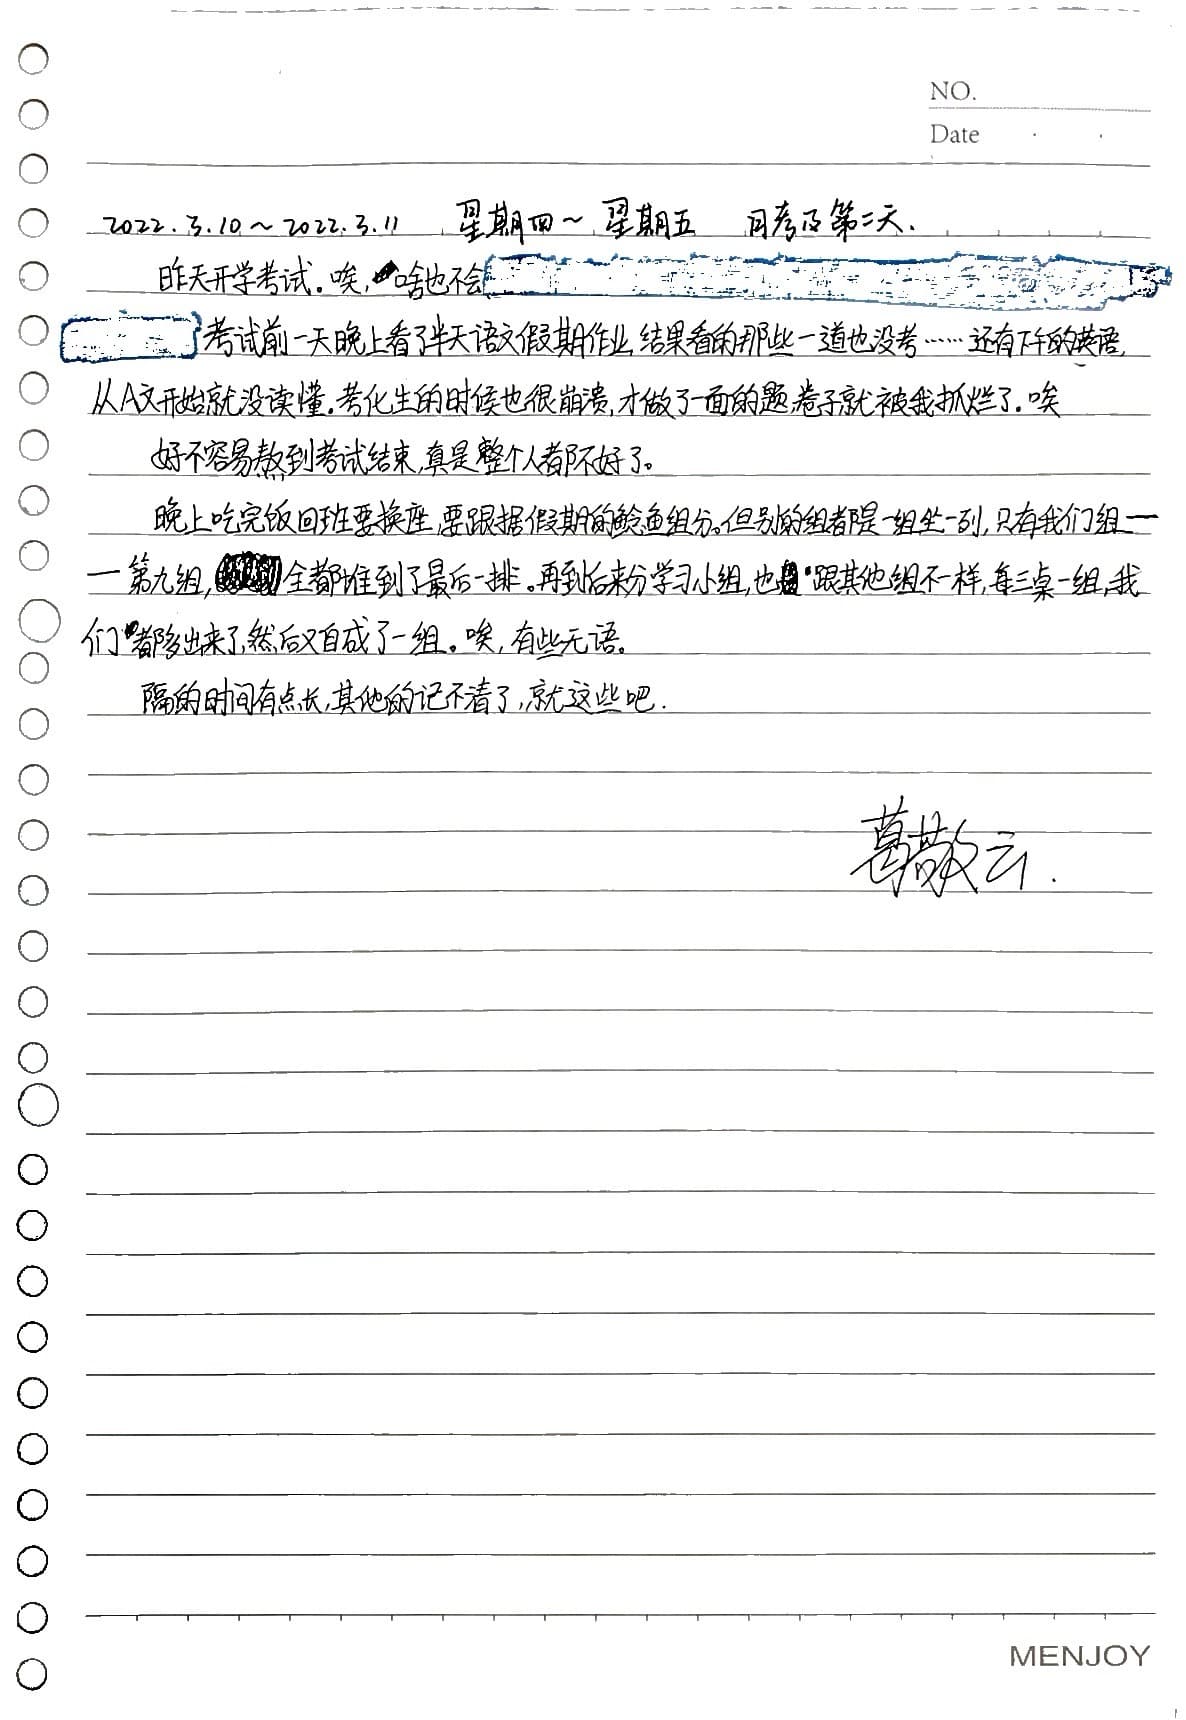 NO.
Date
2022.3.10～2022.3.11 星期四～星期五 月考及第二天.
昨天开学考试。唉，啥也不会
考试前一天晚上看了半天语文假期作业,结果看的那些一道也没考……还有下午的英语,
从A文开始就没读懂.考化生的时候也很崩溃,才做了一面的题,卷子就被我抓烂了.唉
好不容易熬到考试结束,真是整个人都不好了。
晚上吃完饭回班要换座,要跟据假期的鲶鱼组分。但别的组都是一组坐一列,只有我们组—
—第九组,全都堆到了最后一排。再到后来分学习小组,也跟其他组不一样,每三桌一组,我
们都多出来了,然后又自成了一组。唉,有些无语。
隔的时间有点长,其他的记不清了,就这些吧.
葛敬云.
MENJOY